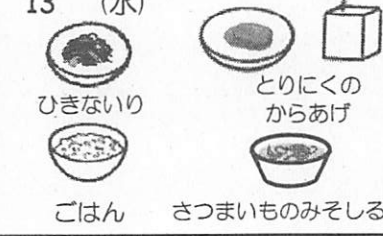 13 (水)
ひきないり
とりにくの
からあげ
ごはん
さつまいものみそしる